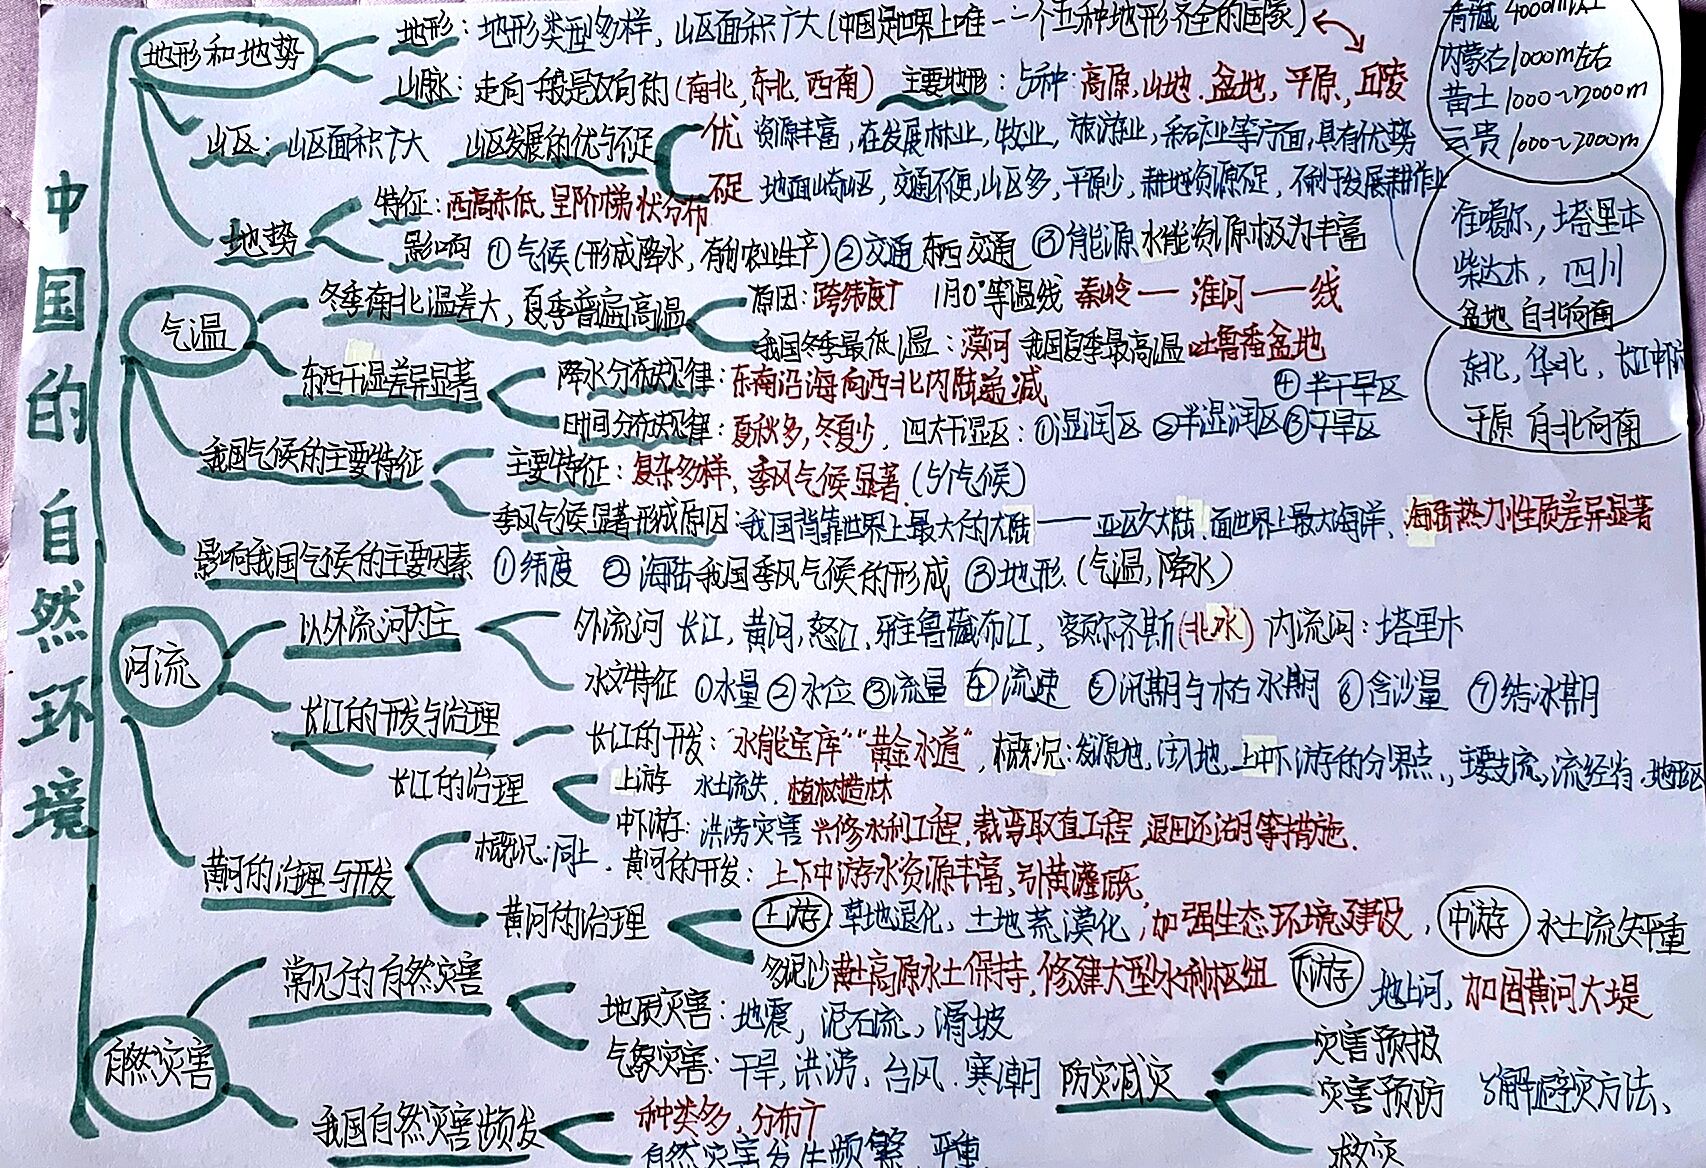 中国的自然环境
地形和地势
地形：地形类型多样，山区面积广大(中国是世界上唯一一个五种地形齐全的国家)
山脉：走向一般是双向的(南北,东北,西南) 主要地形：5种:高原,山地.盆地,平原,丘陵
山区：山区面积广大 山区发展的优与不足
优 资源丰富,在发展林业,牧业,旅游业,采矿业等方面,具有优势
不足 地面崎岖,交通不便,山区多,平原少,耕地资源不足,不利于发展耕作业
地势
特征：西高东低,呈阶梯状分布
影响 ①气候(形成降水,有利农业生产)②交通 东西交通 ③能源 水能资源极为丰富
青藏 4000m以上
内蒙古1000m左右
黄土 1000~2000m
云贵 1000~2000m
准噶尔,塔里木
柴达木,四川
盆地 自北向南
东北,华北,长江中下
平原 自北向南
气温
冬季南北温差大,夏季普遍高温
原因：跨纬度广 1月0°等温线 秦岭——淮河——线
我国冬季最低温：漠河 我国夏季最高温 吐鲁番盆地
东西干湿差异显著
降水分布规律：东南沿海向西北内陆递减 ④半干旱区
时间分布规律：夏秋多,冬春少, 四大干湿区：①湿润区 ②半湿润区③干旱区
我国气候的主要特征
主要特征：复杂多样,季风气候显著(5个气候)
季风气候显著形成原因:我国背靠世界上最大的大陆——亚欧大陆.面世界上最大海洋、海陆热力性质差异显著
影响我国气候的主要因素 ①纬度 ②海陆 我国季风气候的形成 ③地形(气温,降水)
河流
以外流河为主
外流河 长江,黄河,怒江,雅鲁藏布江,额尔齐斯(北冰) 内流河：塔里木
水文特征 ①水量②水位③流量 ④流速 ⑤汛期与枯水期 ⑥含沙量 ⑦结冰期
长江的开发与治理
长江的开发："水能宝库""黄金水道",概况:发源地,注入地,上中下游的分界点,主要支流,流经省.地形区
长江的治理
上游 水土流失,植树造林
中下游：洪涝灾害 兴修水利工程,裁弯取直工程,退田还湖等措施.
黄河的治理与开发
概况:同上.黄河的开发：上下中游水资源丰富,引黄灌溉
黄河的治理
上游:草地退化、土地荒漠化,加强生态环境建设,中游 水土流失严重
多泥沙 黄土高原水土保持,修建大型水利枢纽 下游 地上河,加固黄河大堤
自然灾害
常见的自然灾害
地质灾害：地震,泥石流,滑坡
气象灾害：干旱,洪涝,台风.寒潮
防灾减灾
灾害预报
灾害预防 了解避灾方法、
救灾
我国自然灾害频发
种类多,分布广
自然灾害发生频繁,严重